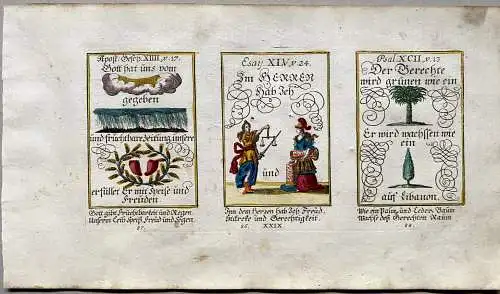 Apost. Gesch. XIIII, v. 17.
Gott hat uns vom
gegeben
und fruchtbare Zeitung unsere
erfüllet Er mit Speise und
Freuden
Gott gibt Fruchtbarkeit und Regen
Unserm Leib Speiß Freud und Segen
27.
Esai XLV, v. 24.
Im HERREN
hab Ich
und
Inn dem Herren hab Ich Freud,
Stärcke und Gerechtigkeit.
25. XXIX
Psal. XCII, v. 13
Der Gerechte
wird grünen wie ein
Er wird wachssen wie
ein
auf Libanon.
Wie ein Palm, und Ceder Baum
Wachße deß Gerechten Raum